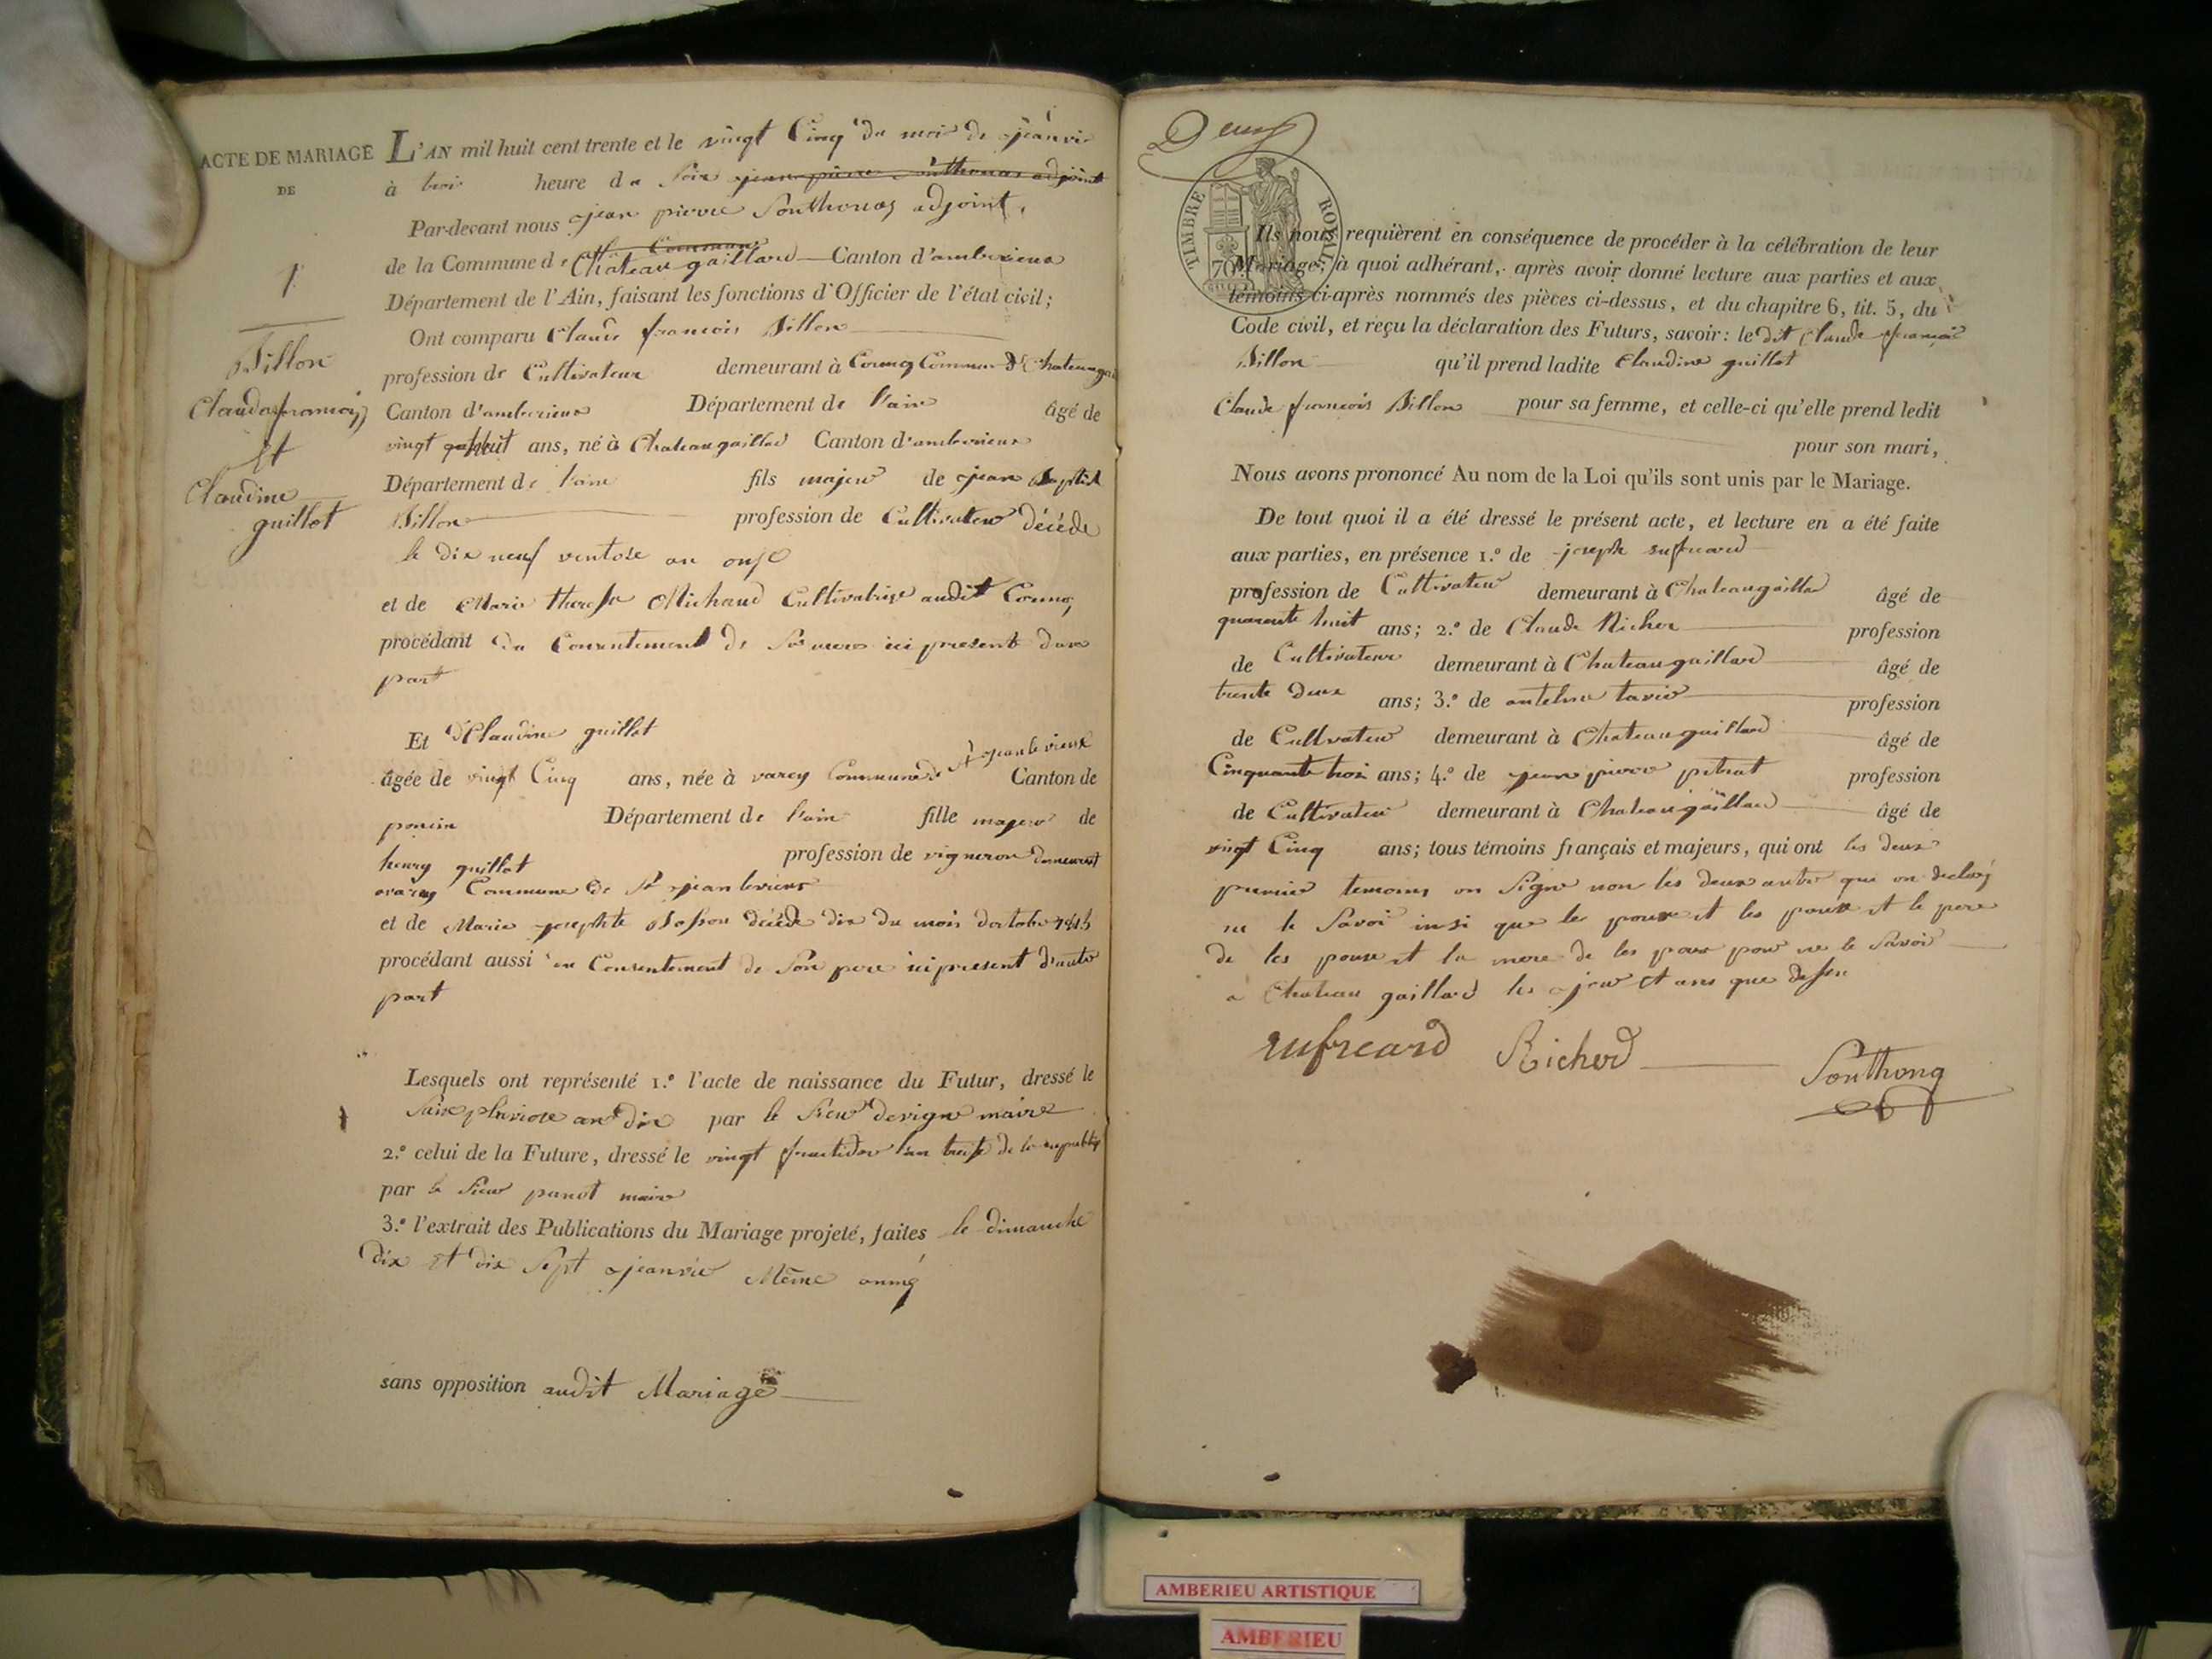 ACTE DE MARIAGE
DE
1
Billon
Claude françois
Et
Claudine
guillot
L'AN mil huit cent trente et le vingt Cinq du mois de jeanvie
à trois heure du Soir jean pierre Sonthonas adjoint
Par-devant nous jean pierre Sonthonas adjoint,
de la Commune de Chateau gaillard Canton d'amberieux
Département de l'Ain, faisant les fonctions d'Officier de l'état civil;
Ont comparu Claude francois Billon
profession de Cultivateur demeurant à Commune de Chateaugai
Canton d'amberieux Département de l'ain âgé de
vingt huit ans, né à Chateaugaillad Canton d'amberieux
Département de l'ain fils majeur de jean Baptist
Billon profession de Cultivateur décéde
le dix neuf ventose an onze
et de Marie therese Michaud Cultivatrise audit
procédant du Consentement de Sa mere ici present dune
part
Et Claudine guillot
âgée de vingt Cinq ans, née à varey Commune de St jean le vieux Canton de
poncin Département de l'ain fille majeur de
henry guillot profession de vigneron demeurant
avarey Commune de St jean levieux
et de Marie josephte Bosson décéde dix du mois doctobre
procédant aussi du Consentement de Son pere ici present d'autre
part
Lesquels ont représenté 1.º l'acte de naissance du Futur, dressé le
Seize pluviose an dix par le Sieur devigne maire
2.º celui de la Future, dressé le vingt fructidor l'an treize de la republiq
par le Sieur panot maire
3.º l'extrait des Publications du Mariage projeté, faites le dimanche
dix et dix Sept jeanvie Même anné
sans opposition audit Mariage
Deux
TIMBRE ROYAL
70
Ils nous requièrent en conséquence de procéder à la célébration de leur
Mariage; à quoi adhérant, après avoir donné lecture aux parties et aux
témoins ci-après nommés des pièces ci-dessus, et du chapitre 6, tit. 5, du
Code civil, et reçu la déclaration des Futurs, savoir: le dit Claude francois
Billon qu'il prend ladite Claudine guillot
Claude francois Billon pour sa femme, et celle-ci qu'elle prend ledit
pour son mari,
Nous avons prononcé Au nom de la Loi qu'ils sont unis par le Mariage.
De tout quoi il a été dressé le présent acte, et lecture en a été faite
aux parties, en présence 1.º de joseph
profession de Cultivateur demeurant à Chateaugaillad âgé de
quarante huit ans; 2.º de Claude Richer profession
de Cultivateur demeurant à Chateaugaillard âgé de
trente deux ans; 3.º de antelme tavie profession
de Cultvateur demeurant à Chateaugaillard âgé de
Cinquante trois ans; 4.º de jean pierre petrat profession
de Cultivateur demeurant à Chateaugaillad âgé de
vingt Cinq ans; tous témoins français et majeurs, qui ont les deux
premier temoins on Signe non les deux autre qui on
ne le Savoir insi que les poux et les pouse et le pere
de les pouse et la mere de les poux pour ne le Savoir
a Chateau gaillard les jour et ans que dessu
Richerd
Sonthonas
AMBERIEU ARTISTIQUE
AMBERIEU